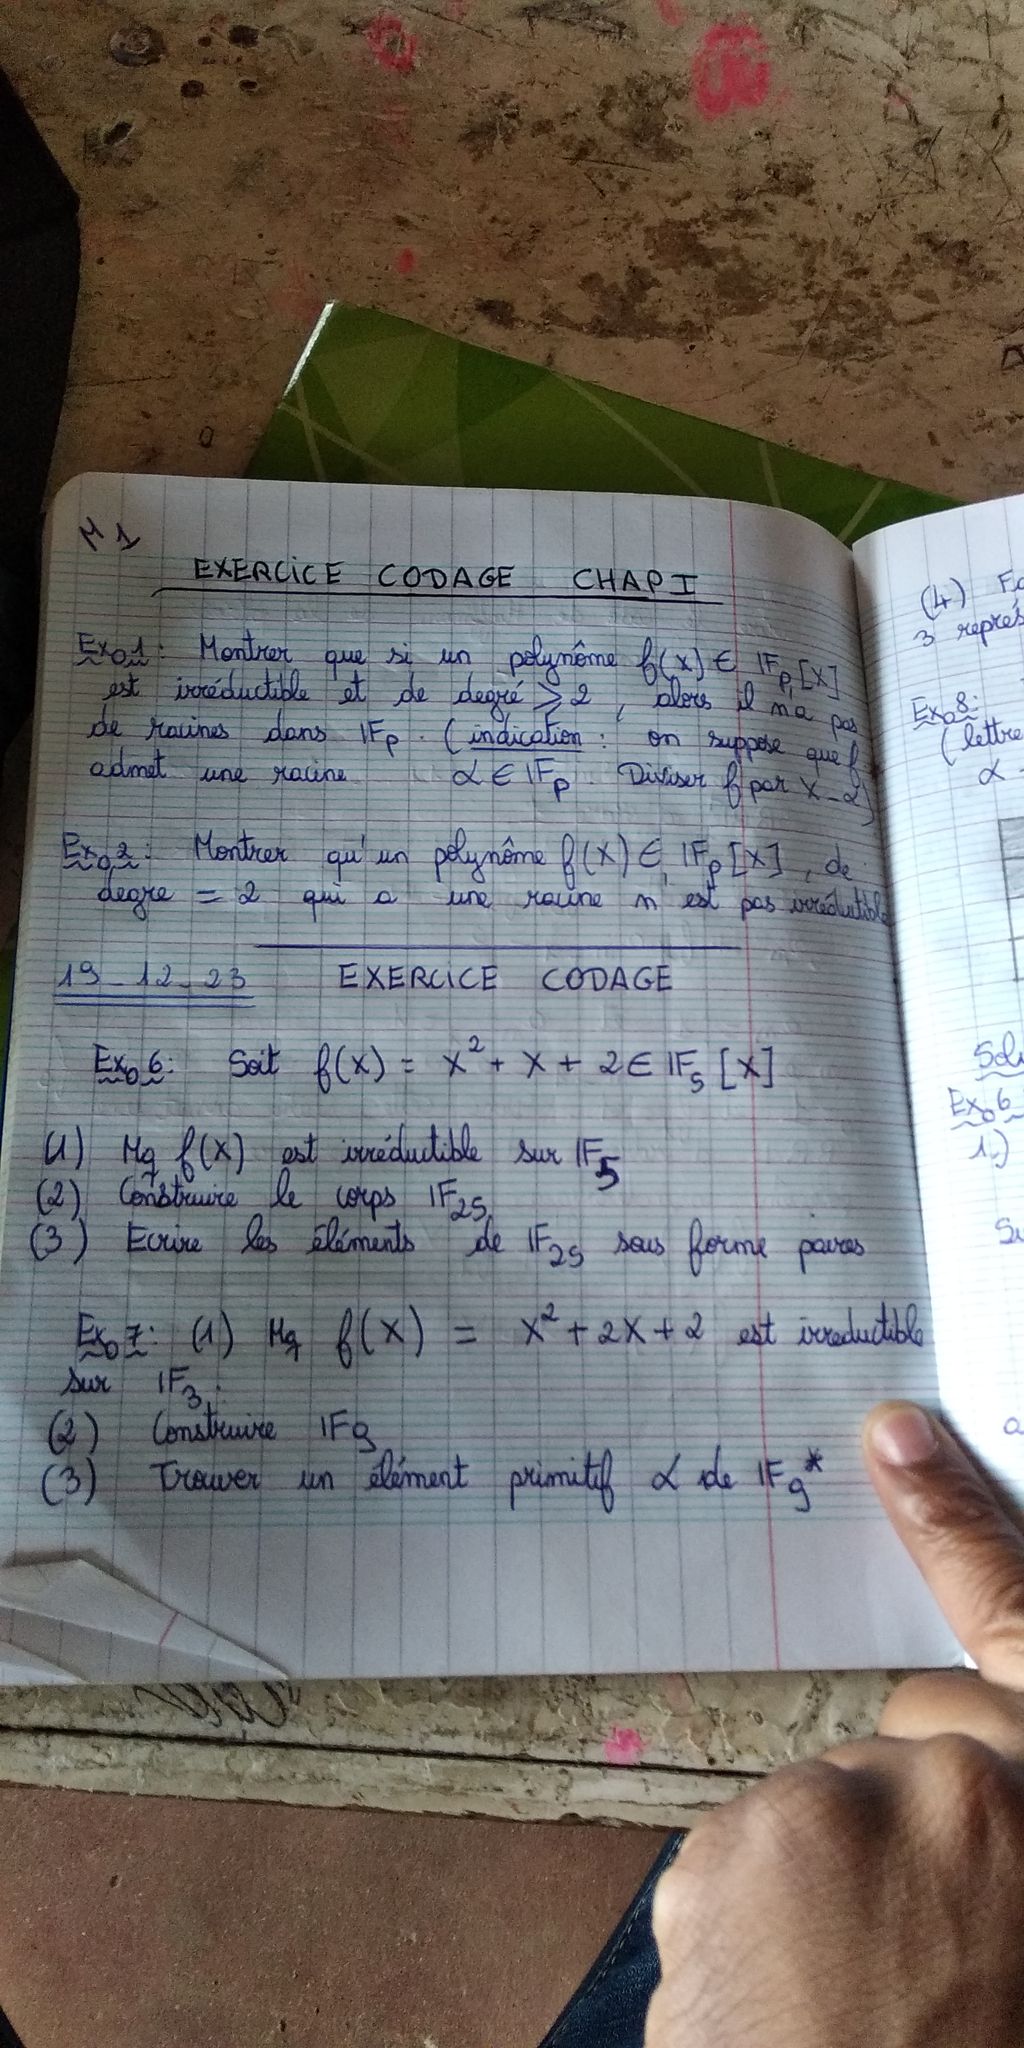 M1
EXERCICE CODAGE CHAP I
Exo 1: Montrer que si un polynôme f(X) ∈ IFp[X]
est irréductible et de degré ⩾ 2, alors il n'a pas
de racines dans IFp. (indication: on suppose que f
admet une racine α ∈ IFp. Diviser f par X-α)
Exo 2: Montrer qu'un polynôme f(X) ∈ IFp[X], de
degre = 2 qui a une racine n'est pas irréductible
19-12-23 EXERCICE CODAGE
Exo 6: Soit f(X) = X² + X + 2 ∈ IF5[X]
(1) Mq f(X) est irréductible sur IF5
(2) Construire le corps IF25
(3) Ecrire les éléments de IF25 sous forme paires
Exo 7: (1) Mq f(X) = X² + 2X + 2 est irreductible
sur IF3.
(2) Construire IF9
(3) Trouver un élément primitif α de IF9*
(4)
3 représ
Exo 8:
(lettre
α
Exo 6
1.)